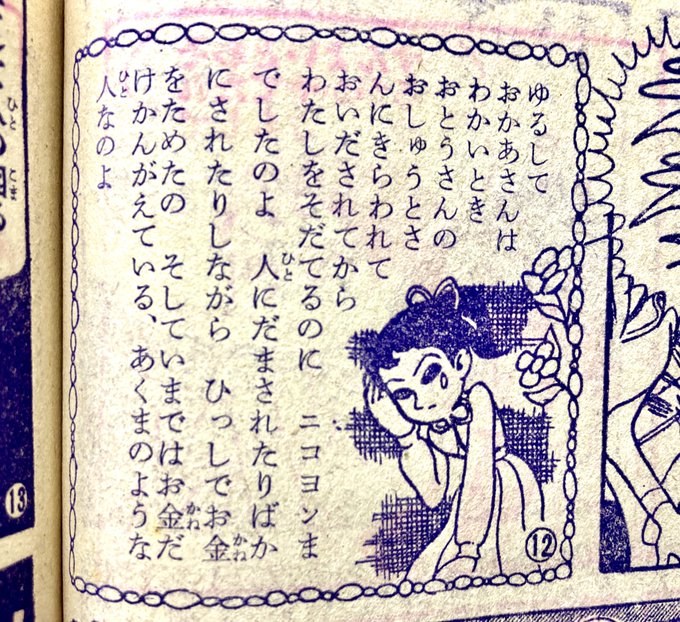 ゆるして
おかあさんは
わかいとき
おとうさんの
おしゅうとさ
んにきらわれて
おいだされてから
わたしをそだてるのに ニコヨンま
でしたのよ 人にだまされたりばか
にされたりしながら ひっしでお金
をためたの そしていまではお金だ
けかんがえている、あくまのような
人なのよ
ひと
かね
かね
ひと
12
13